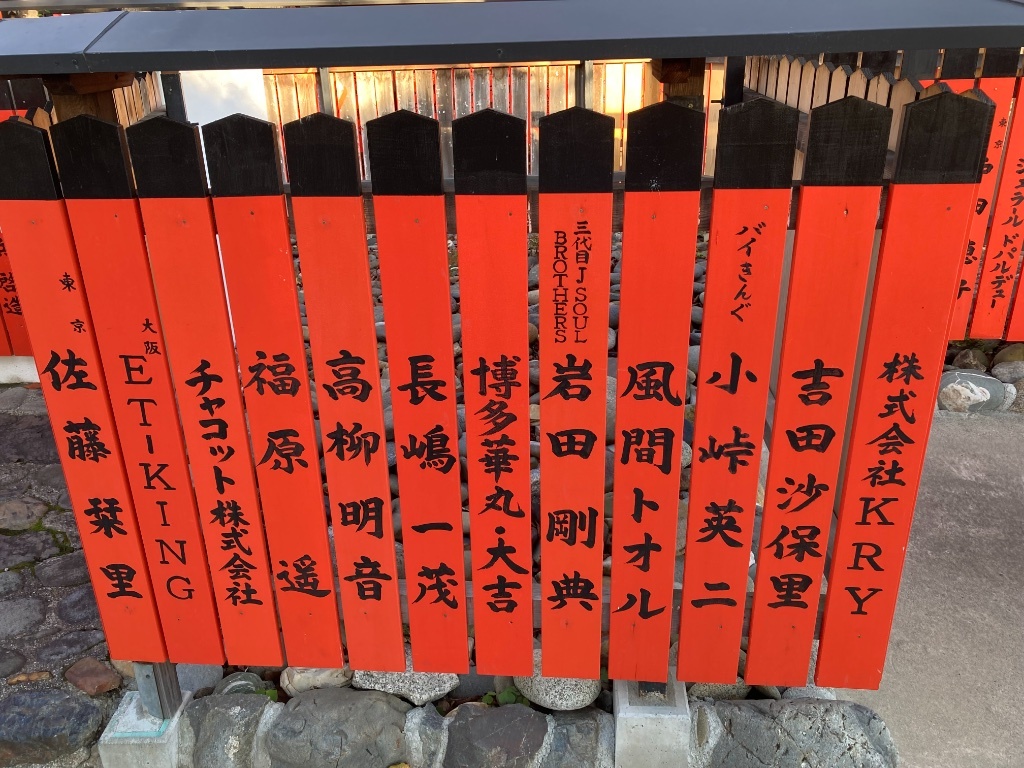 ジェラル ドパルデュー
東京
株式会社KRY
吉田沙保里
バイきんぐ
小峠英二
風間トオル
三代目 J SOUL
BROTHERS
岩田剛典
博多華丸・大吉
長嶋一茂
高柳明音
福原遥
チャコット株式会社
大阪
ET-KING
東京
佐藤栞里
啓造